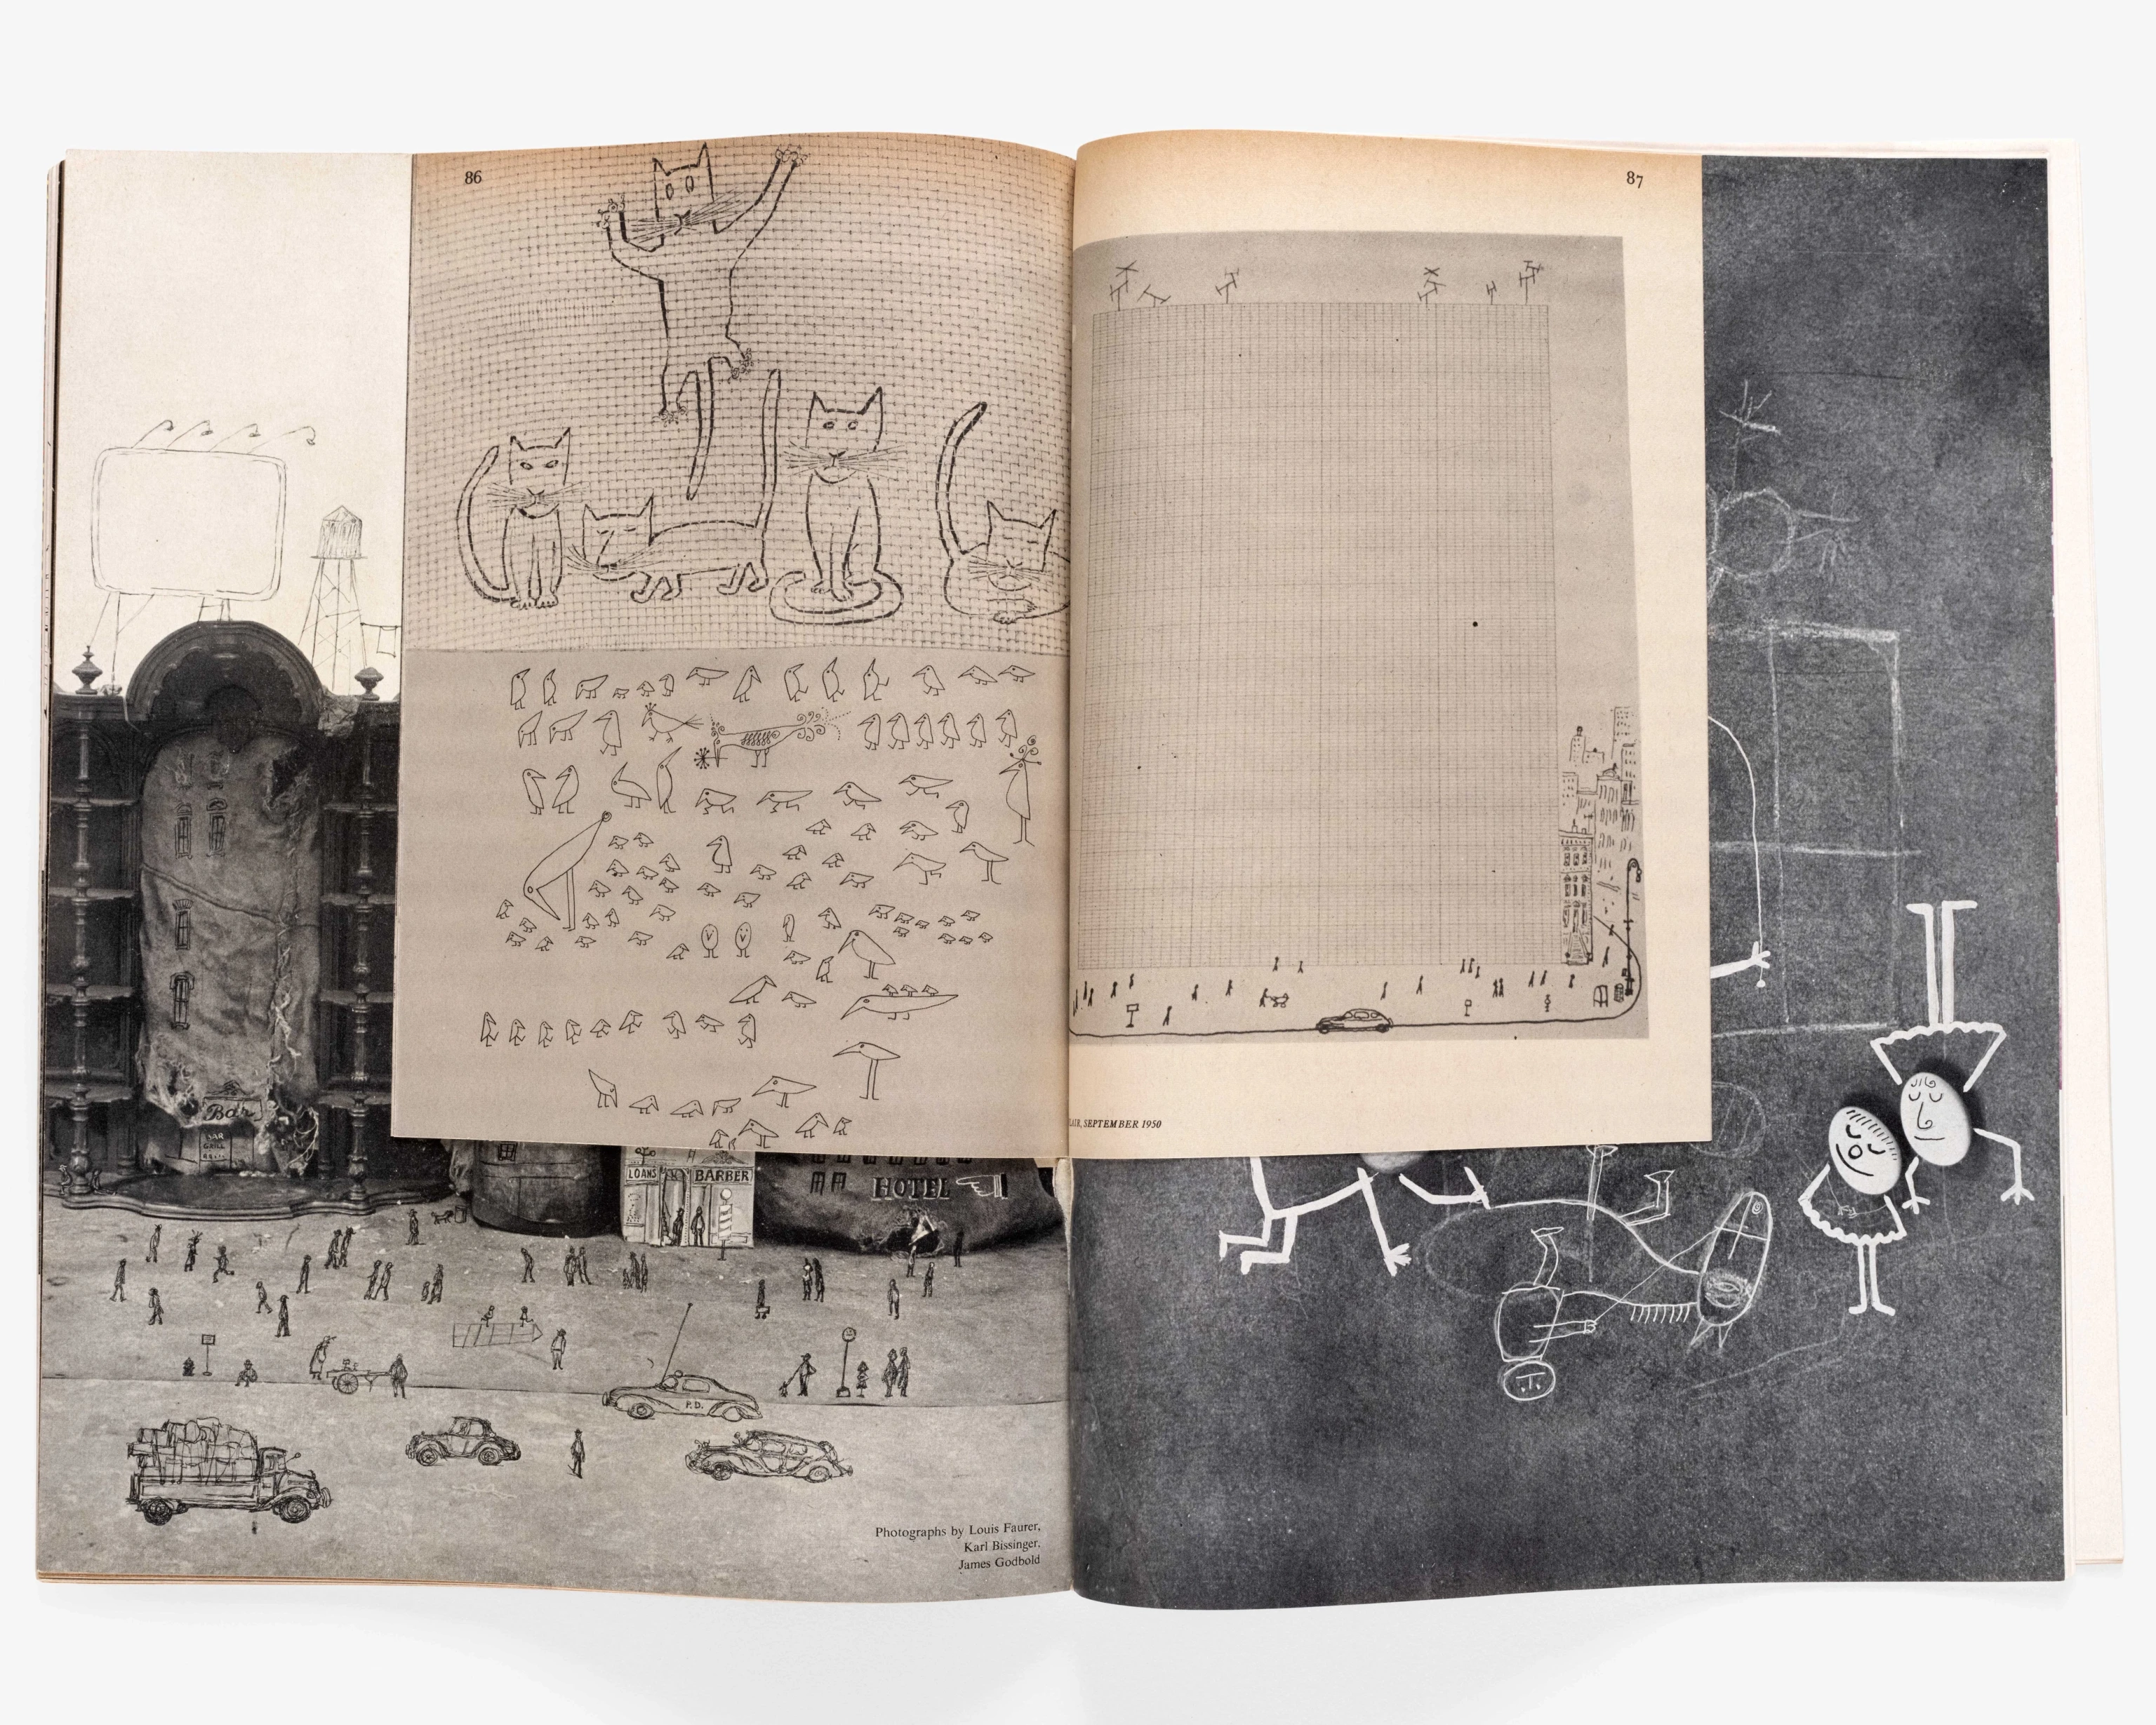 86
87
Bar
BAR
LOANS
BARBER
HOTEL
P.D.
SEPTEMBER 1950
Photographs by Louis Faurer,
Karl Bissinger,
James Godbold